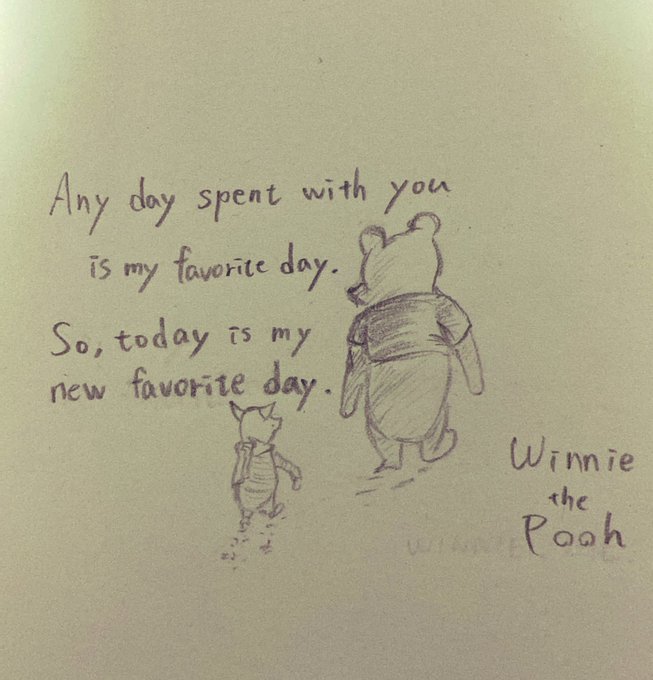 Any day spent with you
is my favorite day.
So, today is my
new favorite day.
Winnie
the
Pooh